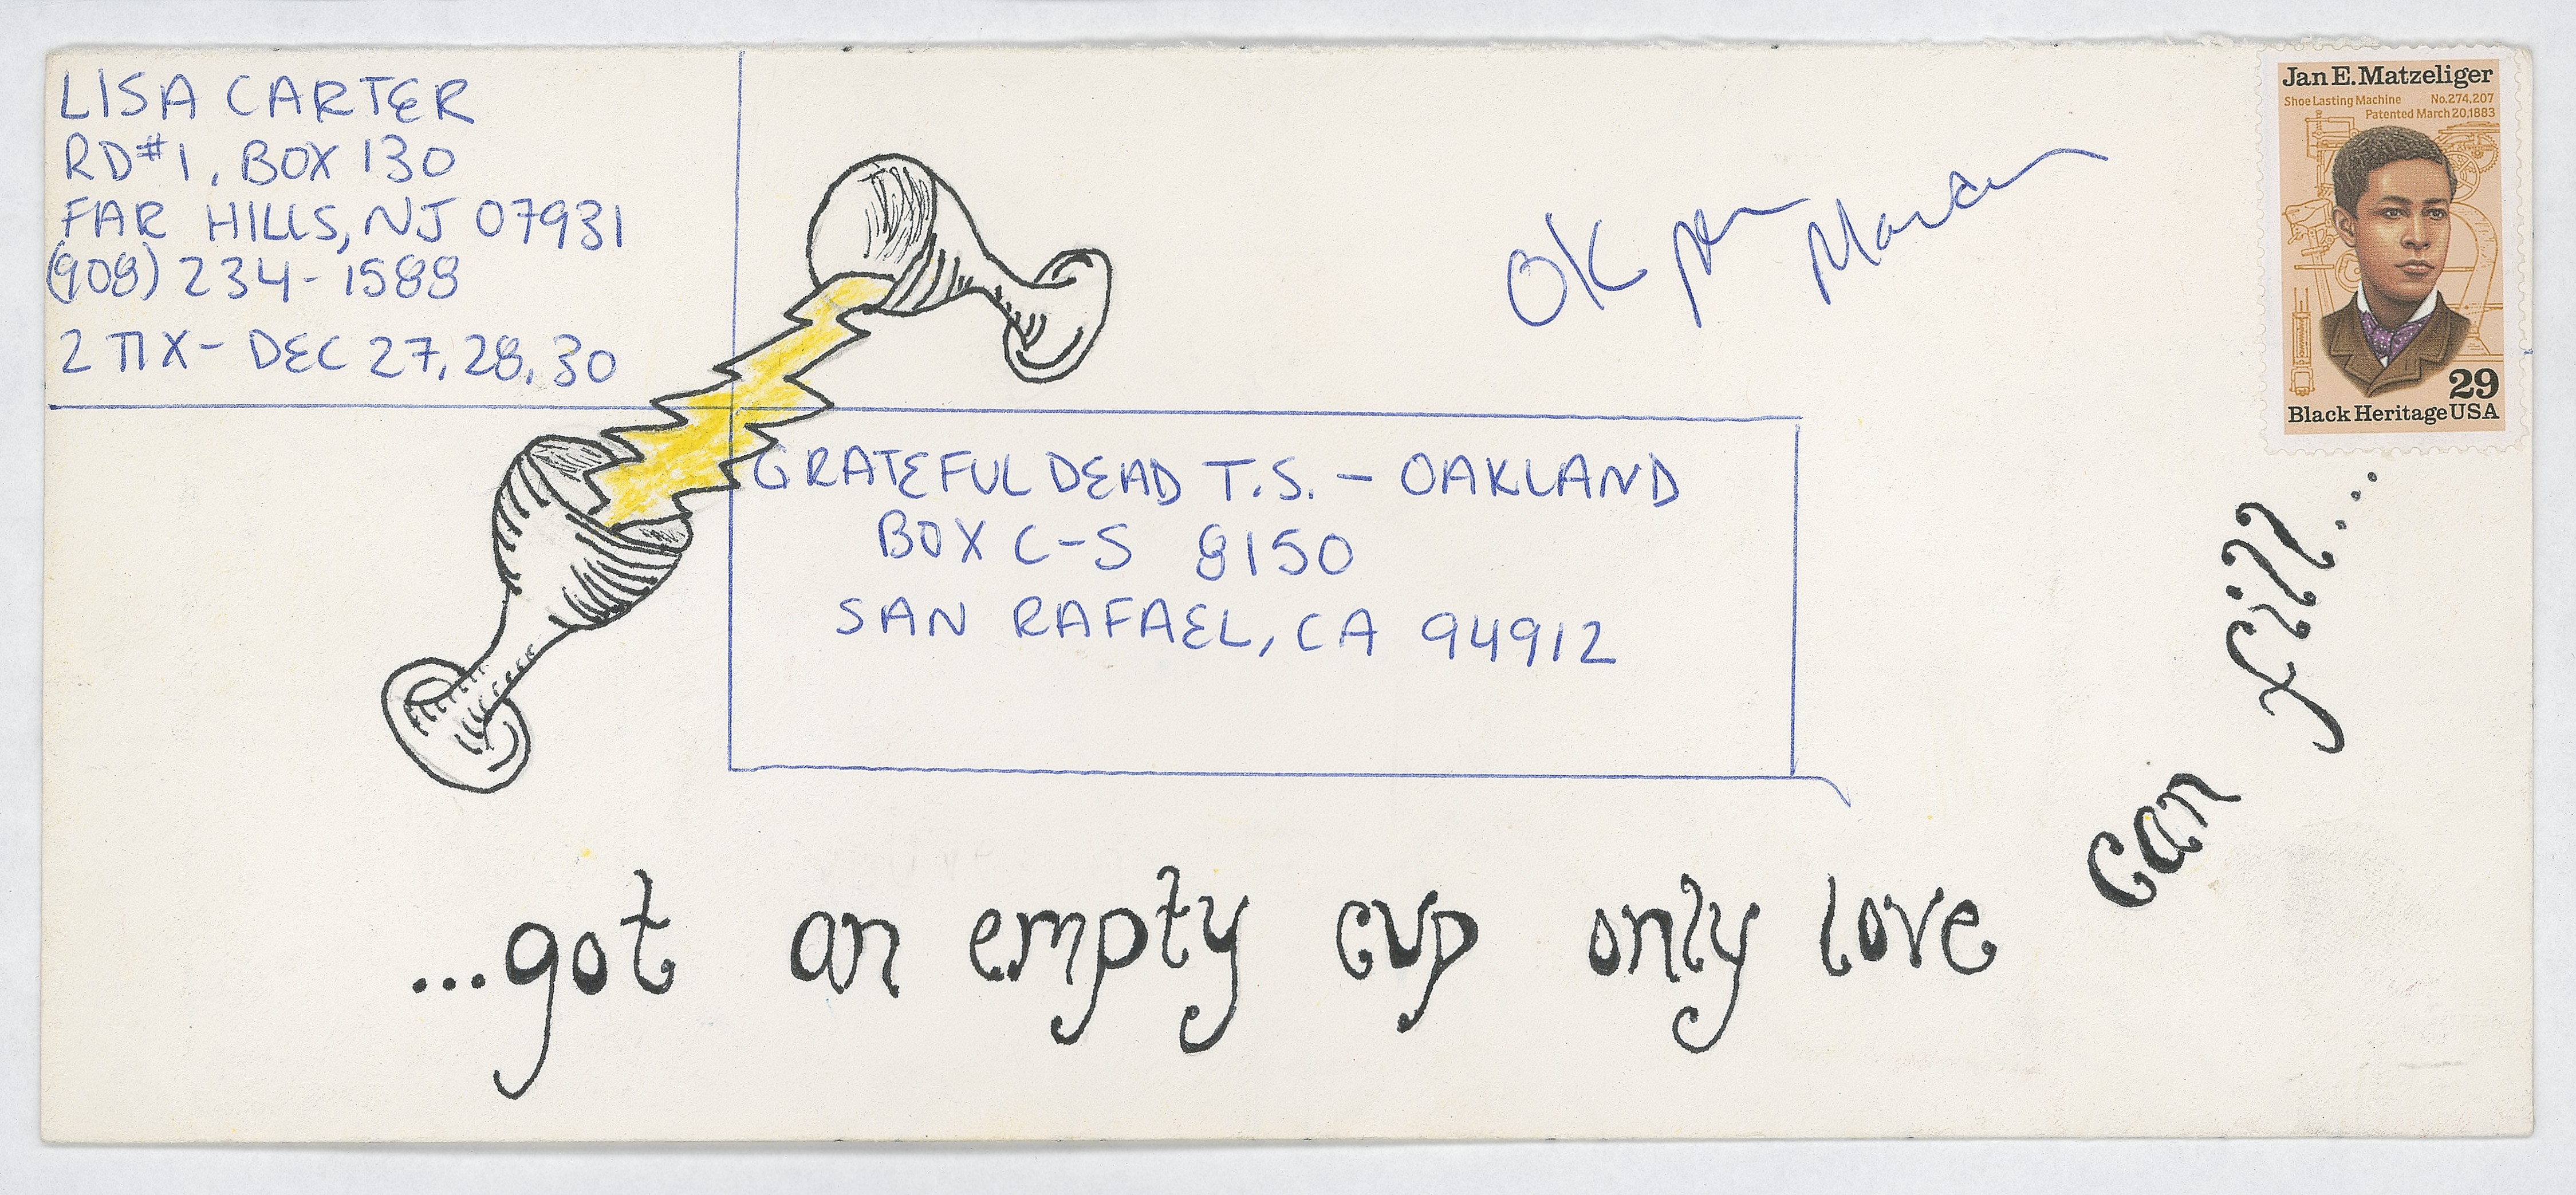 LISA CARTER
RD#1, BOX 130
FAR HILLS, NJ 07931
(908) 234-1588
2 TIX - DEC 27, 28, 30
OK per
Jan E. Matzeliger
Shoe Lasting Machine No. 274,207
Patented March 20, 1883
29
Black Heritage USA
GRATEFUL DEAD T.S. - OAKLAND
BOX C-S 8150
SAN RAFAEL, CA 94912
...got an empty cup only love can fill...